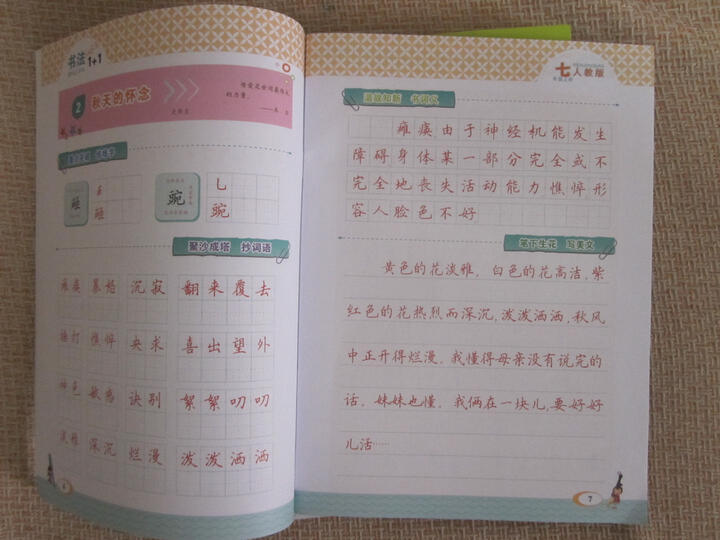 书法1+1
2
秋天的怀念
史铁生
聚沙成塔 抄词语
瘫痪 暴怒 沉寂 翻来覆去
捶打 憔悴 央求 喜出望外
神色 敏感 诀别 絮絮叨叨
淡雅 深沉 烂漫 泼泼洒洒
七 人教版
年级上册
温故知新 书词义
瘫痪由于神经机能发生
障碍身体某一部分完全或不
完全地丧失活动能力憔悴形
容人脸色不好
笔下生花 写美文
黄色的花淡雅，白色的花高洁，紫
红色的花热烈而深沉，泼泼洒洒，秋风
中正开得烂漫。我懂得母亲没有说完的
话。妹妹也懂。我俩在一块儿，要好好
儿活……
7